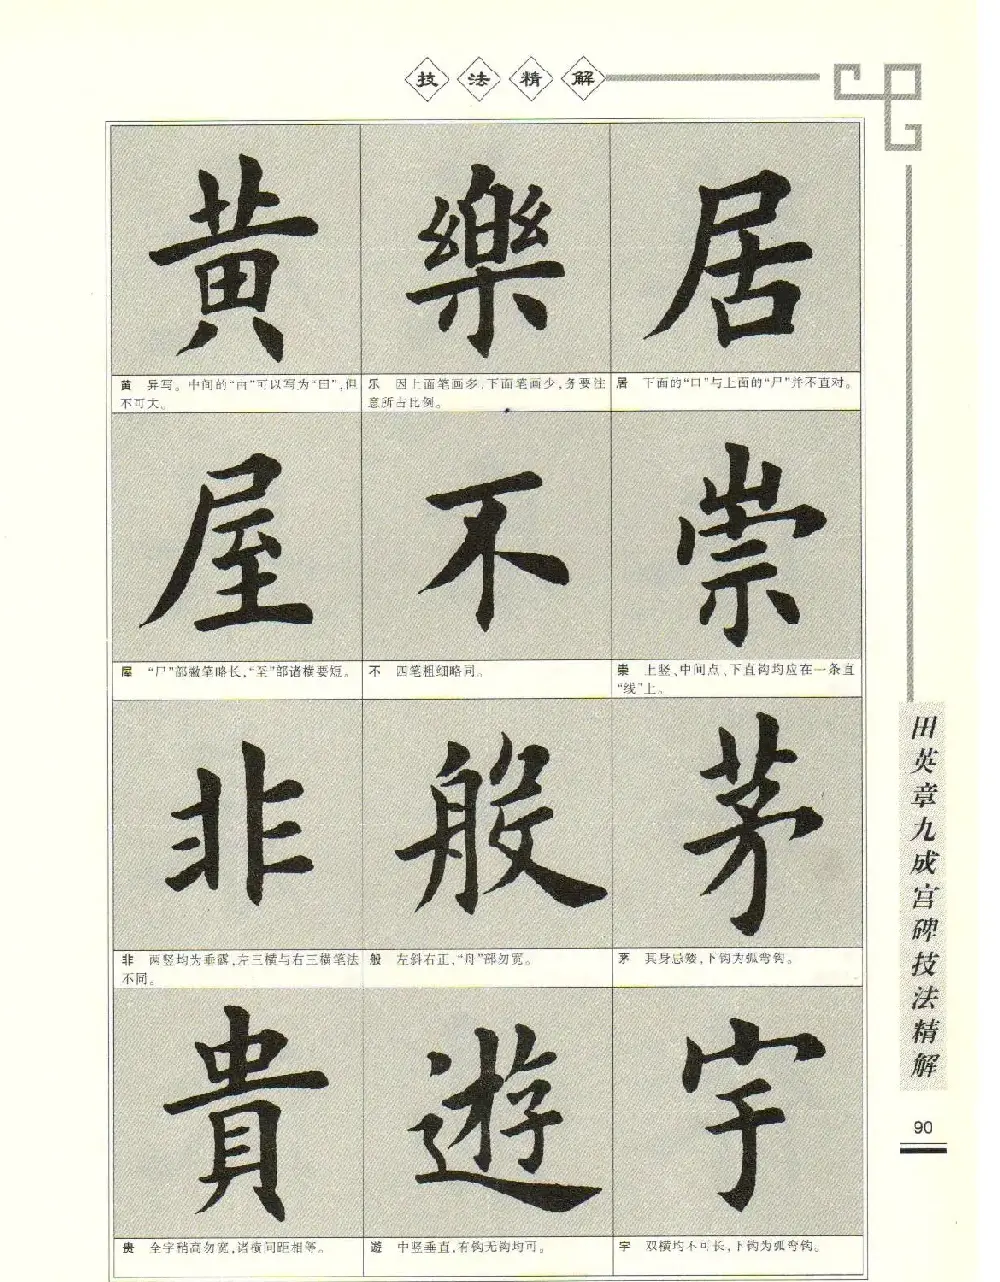 技法精解
黄
樂
居
黄 异写。中间的“由”可以写为“田”,但
不可大。
乐 因上面笔画多,下面笔画少,务要注
意所占比例。
居 下面的“口”与上面的“尸”并不直对。
屋
不
崇
屋 “尸”部撇笔略长,“至”部诸横要短。
不 四笔粗细略同。
崇 上竖、中间点、下直钩均应在一条直
“线”上。
非
般
茅
非 两竖均为垂露,左三横与右三横笔法
不同。
般 左斜右正,“舟”部勿宽。
茅 其身忌矮,下钩为弧弯钩。
貴
遊
宇
贵 全字稍高勿宽,诸横间距相等。
遊 中竖垂直,有钩无钩均可。
宇 双横均不可长,下钩为弧弯钩。
田英章九成宫碑技法精解
90